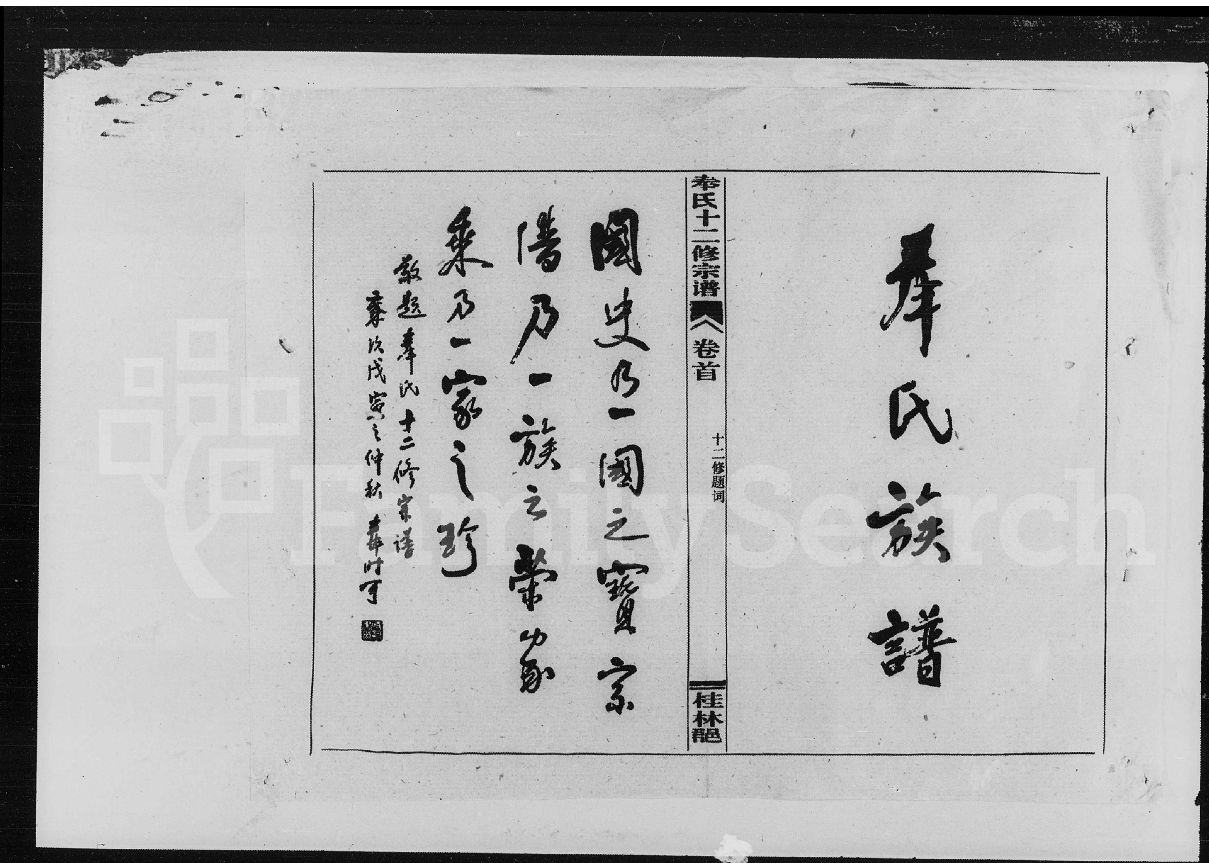 奉氏族譜
奉氏十二修宗谱
卷首
十二修题词
桂林郡
國史乃一國之寶宗
譜乃一族之榮家
乘乃一家之珍
敬题奉氏十二修宗谱
戊寅之仲秋
FamilySearch